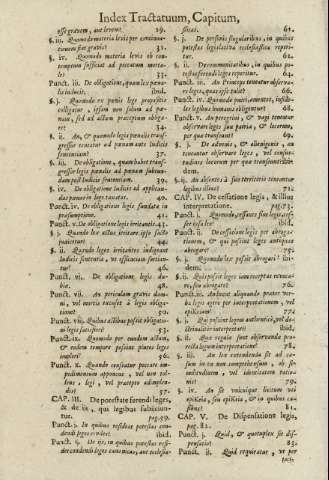 Index Tractatuum, Capitum,
esse gravem, aut levem. 29.
§. iii. Quando materia levis per continuationem
sit gravis? 31.
§. iv. Quomodo materia levis ob contemptum
sufficiat ad peccatum mortale?
33.
Punct. iii. De obligatione, quam lex pœnalis
inducit. ibid.
§. j. Quomodo ex pœnali lege proposita
obligatur, ipsum non solum ad pœnam,
sed ad alium præceptum obliget
34.
§. ii. An, & quomodo legis pœnalis transgressor
teneatur ad pœnam ante Iudicis
sententiam? 37.
§. iii. De obligatione, quam habet transgressor
legis pœnalis ad pœnam subeundam
post Iudicis sententiam. 39.
§. iv. De obligatione Iudicis ad applicandas
pœnas in leges taxatas. 40.
Punct. iv. De obligatione legis fundata in
præsumptione. 41.
Punct. v. De obligatione legis irritantis. 43.
§. j. Quando lex actus irritare ipso facto
44.
§. ii. Quando leges irritantes indigeant
Iudicis sententia, ut effectum sortiantur?
46.
Punct. vi. De obligatione legis dubiæ.
48.
Punct. vii. An periculum gravis damni,
vel mortis excuset à legis obligatione?
50.
Punct. viii. Quibus actibus possit obligationi
legis satisfieri? 53.
Punct. ix. Quomodo per eundem actum,
& eodem tempore possint plures leges
impleri? 56.
Punct. x. Quando teneatur quis
impedimentum apponere, vel non
legi, vel præcepto adimplendi?
57.
CAP. III. De potestate ferendi leges,
& de iis, qui legibus subjiciuntur.
59.
Punct. j. In quibus resideat potestas condendi
leges civiles? ibid.
Punct. ij. De iis, in quibus potestas residet
condendi leges canonicas, aut ecclesia-
sticas. 61.
§. j. De personis singularibus, in quibus
potestas legislativa ecclesiastica reperitur.
62.
§. ii. De communitatibus, in quibus potestas
ferendi leges reperitur. 64.
Punct. iii. An Principes teneantur observare
leges, quas ipsi tulere? 66.
Punct. iv. Quomodo pueri, amentes, infideles
legibus humanis obligentur? 68.
Punct. v. An peregrini, & vagi teneantur
observare leges sui patriæ, & locorum,
per quæ transeunt? 69.
§. j. De advenis, & alienigenis, an
teneantur observare leges, vel consuetudines
locorum per quæ transeunt?
ibidem.
§. ii. An absentes à suis territoriis teneantur
legibus illius? 72.
CAP. IV. De cessatione legis, & illius
interpretatione. pag. 73.
Punct. j. Quomodo cessante fine legis, cesset
ipsa lex? ibid.
Punct. ii. De cessatione legis per abrogationem,
& qui possint leges antiquas
abrogare? 75.
§. j. Quomodo lex possit abrogari? ibidem.
§. ii. Quis possit leges
76.
Punct. iii.
legis aptæ per interpretationem, vel
epikiam? 77.
§. j. Qui possint leges authenticè, vel doctrinaliter
interpretari? ibid.
§. ii. Quæ regulæ sint observandæ pro
legum interpretatione? 78.
§. iii. An lex extendenda sit ad casum
in ea non comprehensum, ob
similitudinem, vel identitatem rationis?
79.
§. iv. An sit vinculum licitum uti
epikeia, seu epikia, & in quibus casibus?
81.
CAP. V. De Dispensatione legis,
pag. 82.
Punct. j. Quid, & quotuplex sit dispensatio?
83.
Punct. ii. Quid requiratur, ut per